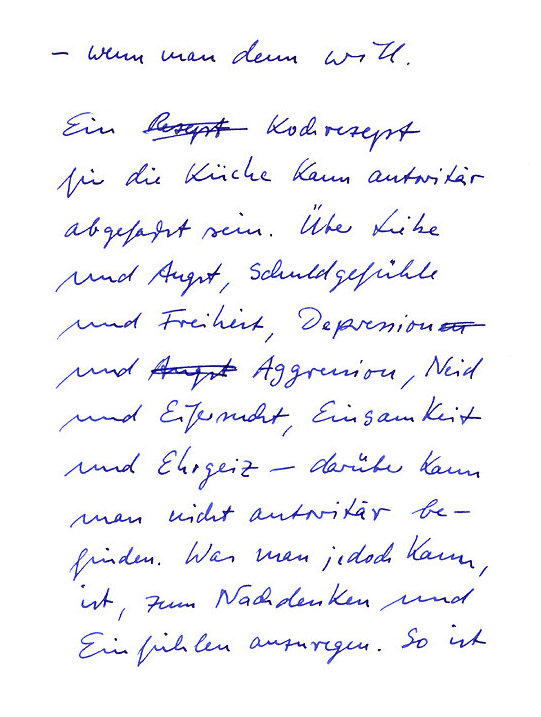 – wenn man denn will.
Ein Rezept Kochrezept
für die Küche kann autoritär
abgefaßt sein. Über Liebe
und Angst, Schuldgefühle
und Freiheit, Depressionen
und Angst Aggression, Neid
und Eifersucht, Einsamkeit
und Ehrgeiz – darüber kann
man nicht autoritär be-
finden. Was man jedoch kann,
ist, zum Nachdenken und
Einfühlen anzuregen. So ist